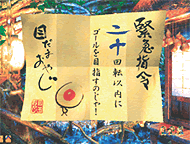 緊急指令
二十回転以内に
ゴールを目指すのじゃ!
目だま
おやじ